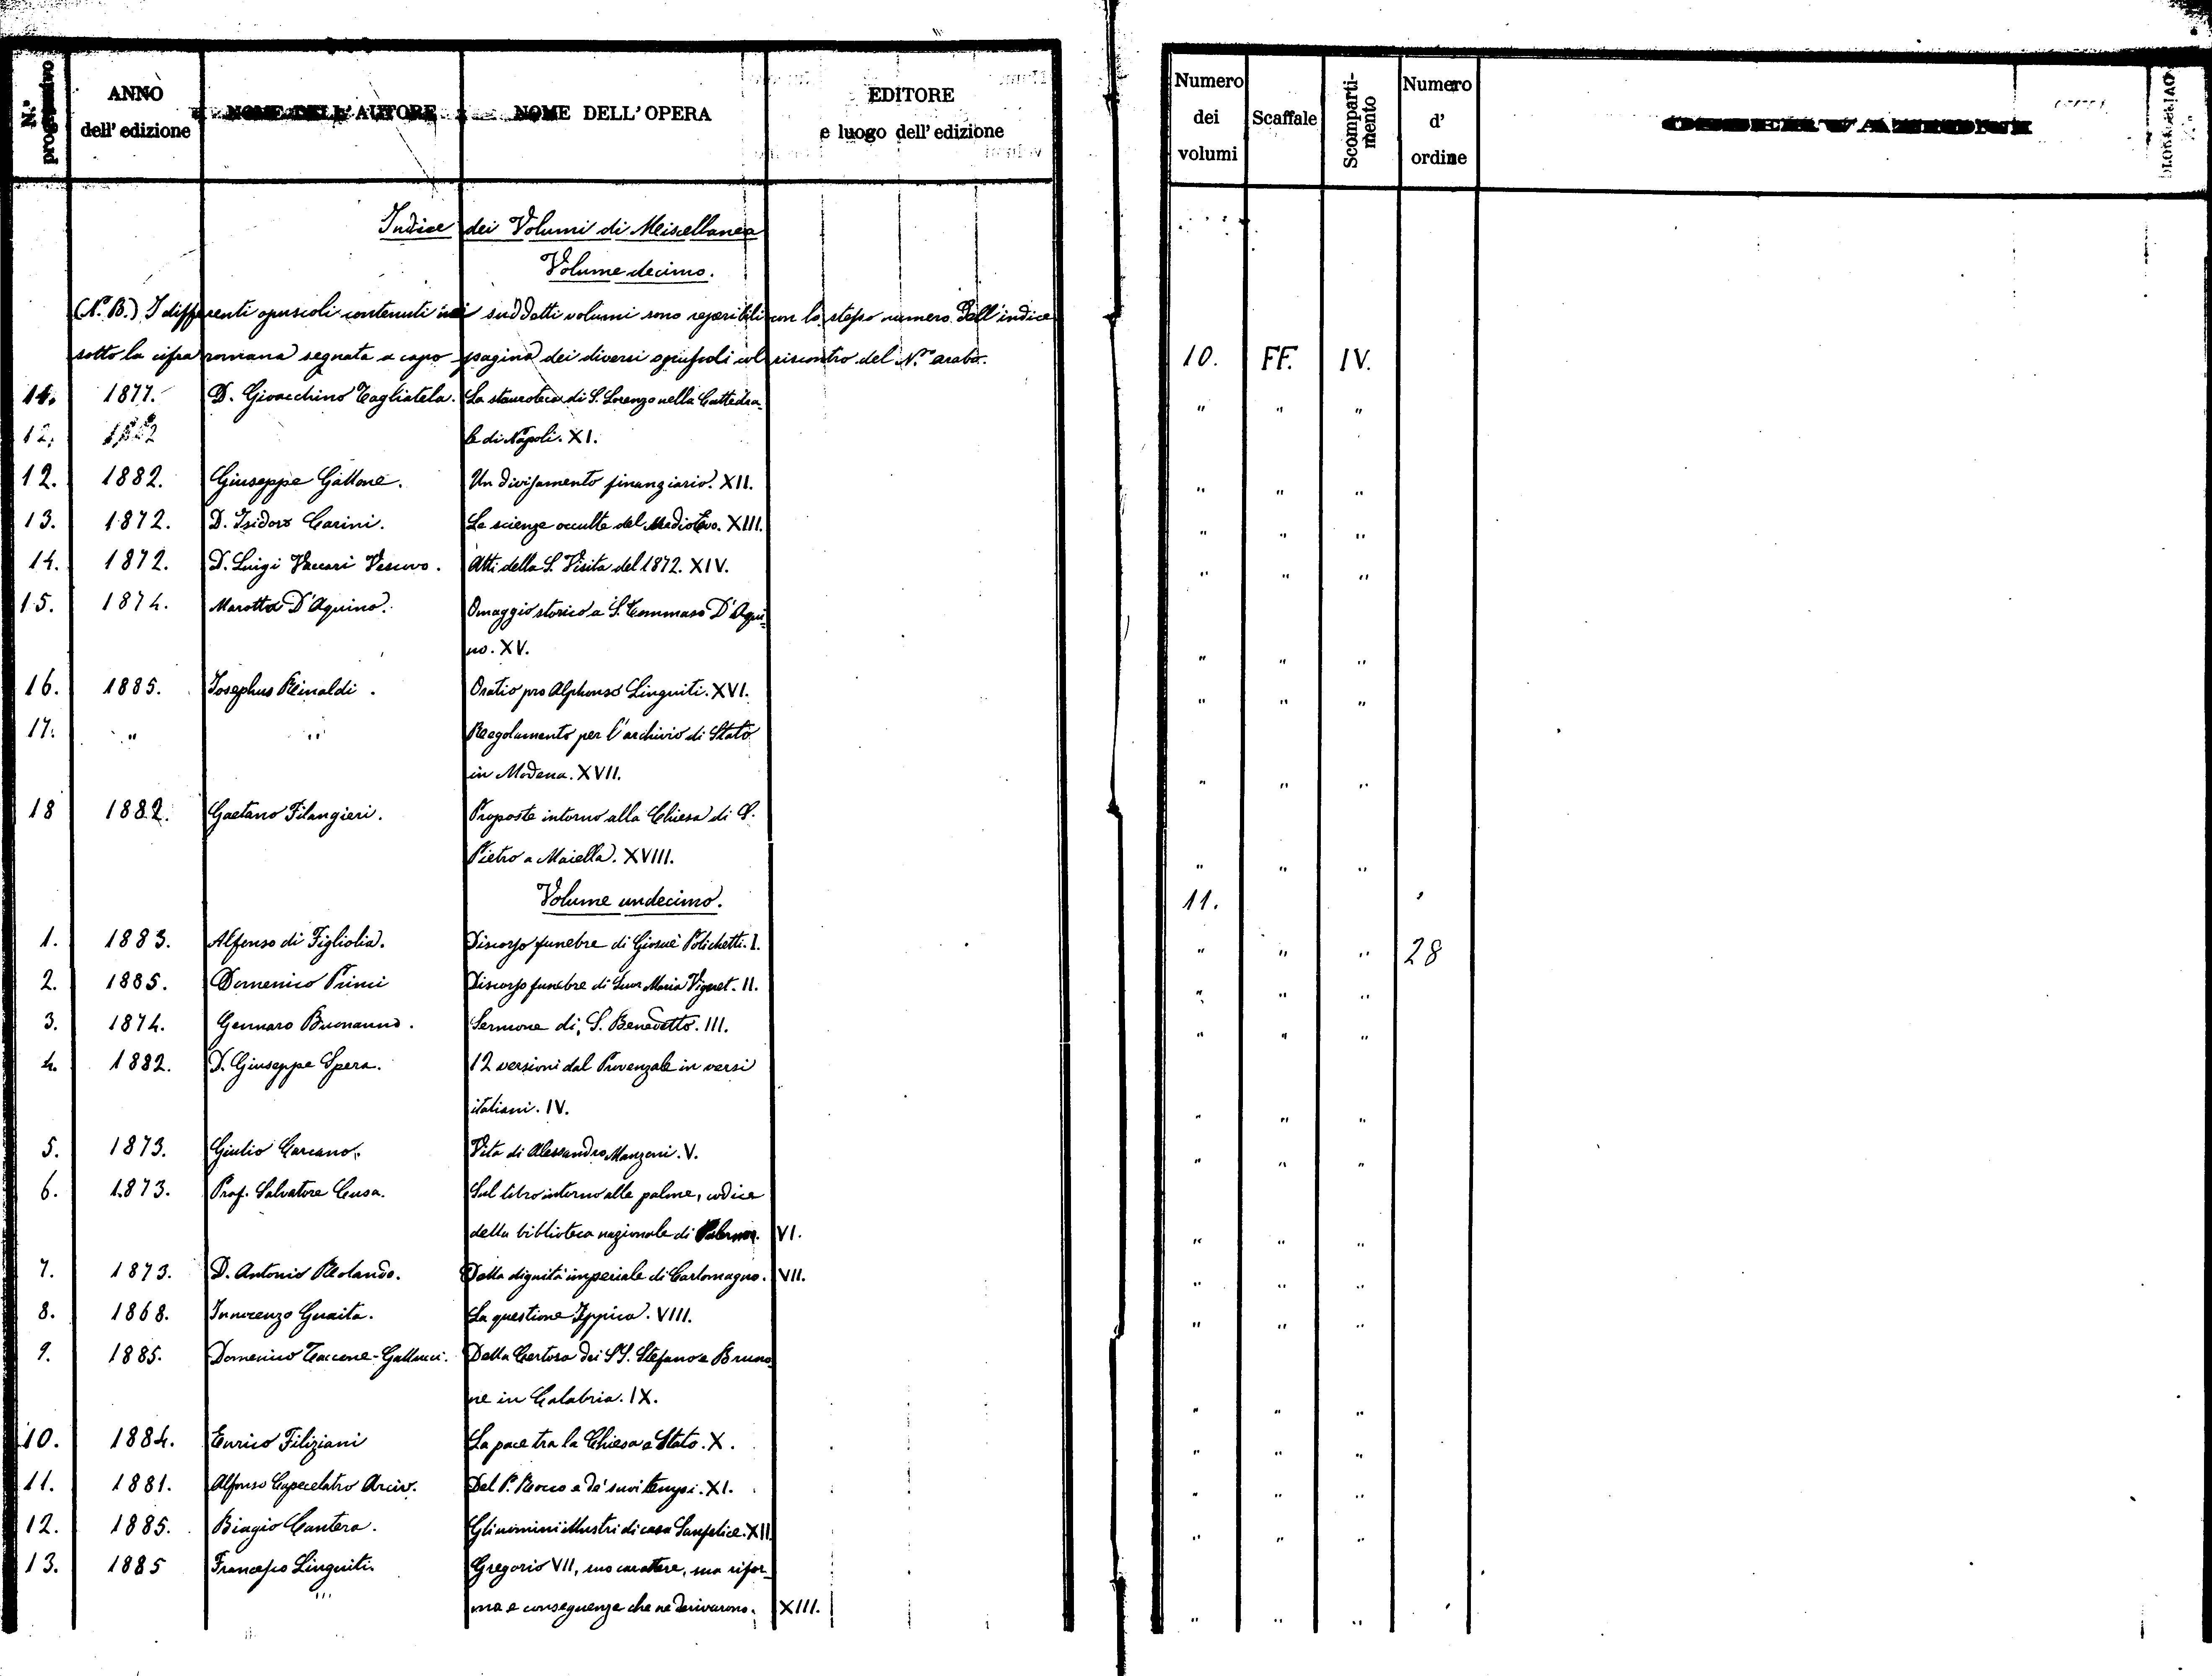 N.º progressivo ANNO dell' edizione NOME DELL' AUTORE NOME DELL' OPERA EDITORE e luogo dell' edizione Numero dei volumi Scaffale Scomparti-mento Numero d' ordine
Indice dei Volumi di Miscellanea
Volume decimo.
(N. B.) I differenti opuscoli contenuti nei suddetti volumi sono reperibili con lo stesso numero dell'indice
sotto la cifra romana segnata a capo pagina dei diversi opuscoli col riscontro del N.º arabo. 10. FF. IV.
11. 1877. D. Gioacchino Tagliatela. La stauroteca di S. Lorenzo nella Cattedra- " " "
12. 1882 le di Napoli. XI.
12. 1882. Giuseppe Gallone. Un divisamento finanziario. XII. " " "
13. 1872. D. Isidoro Carini. Le scienze occulte del Medio Evo. XIII. " " "
14. 1872. D. Luigi Vaccari Vescovo. Atti della S. Visita del 1872. XIV. " " "
15. 1874. Marotta D'Aquino. Omaggio storico a S. Tommaso D'Aqui-
no. XV. " " "
16. 1885. Josephus Rinaldi. Oratio pro Alphonso Linguiti. XVI. " " "
17. " " Regolamento per l'archivio di Stato
in Modena. XVII. " " "
18 1882. Gaetano Filangieri. Proposte intorno alla Chiesa di S.
Pietro a Maiella. XVIII. " " "
Volume undecimo. 11.
1. 1883. Alfonso di Figliolia. Discorso funebre di Giosuè Polichetti. I. " " " 28
2. 1885. Domenico Primi Discorso funebre di Suor Maria Vignet. II. " " "
3. 1874. Gennaro Buonanno. Sermone di S. Benedetto. III. " " "
4. 1882. D. Giuseppe Spera. 12 versioni dal Provenzale in versi
italiani. IV. " " "
5. 1873. Giulio Carcano. Vita di Alessandro Manzoni. V. " " "
6. 1873. Prof. Salvatore Cusa. Sul libro intorno alle palme, codice
della biblioteca nazionale di Palermo. VI. " " "
7. 1873. D. Antonio Rolando. Della dignità imperiale di Carlomagno. VII. " " "
8. 1868. Innocenzo Guaita. La questione Ippica. VIII. " " "
9. 1885. Domenico Taccone-Gallucci. Della Certosa dei SS. Stefano e Bruno-
ne in Calabria. IX. " " "
10. 1884. Enrico Filiziani La pace tra la Chiesa e Stato. X. " " "
11. 1881. Alfonso Capecelatro Arciv. Del P. Rocco e de' suoi tempi. XI. " " "
12. 1885. Biagio Cantera. Gli uomini illustri di casa Sanfelice. XII. " " "
13. 1885 Francesco Linguiti. Gregorio VII, suo carattere, sua rifor-
" ma e conseguenze che ne derivarono. XIII. " " "